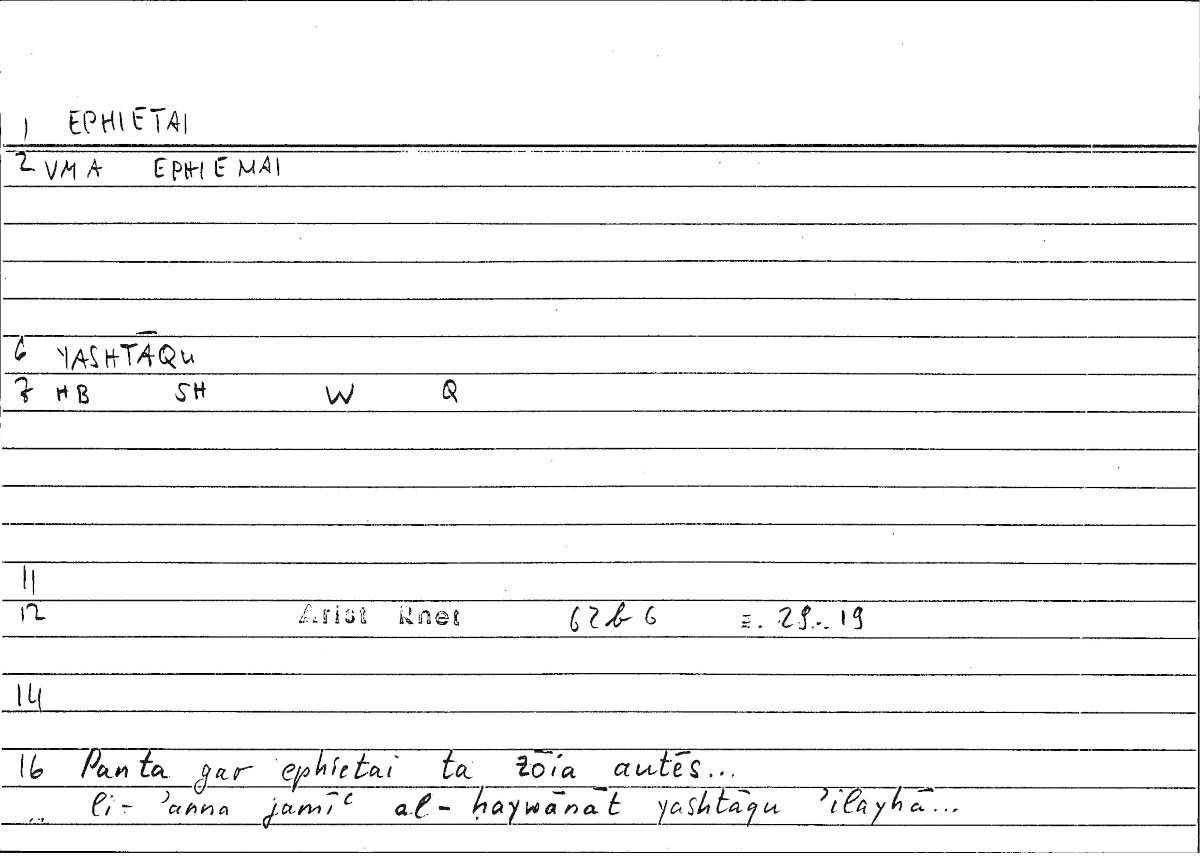 1 EPHIETAI
2 VMA EPHIEMAI
6 YASHTĀQU
7 HB SH W Q
11
12 Arist Rhet 62b6 = 29.. 19
14
16 Panta gar ephietai ta zōia autēs...
.. li-ʾanna jamīʿ al-ḥaywānāt yashtāqu ʾilayhā...